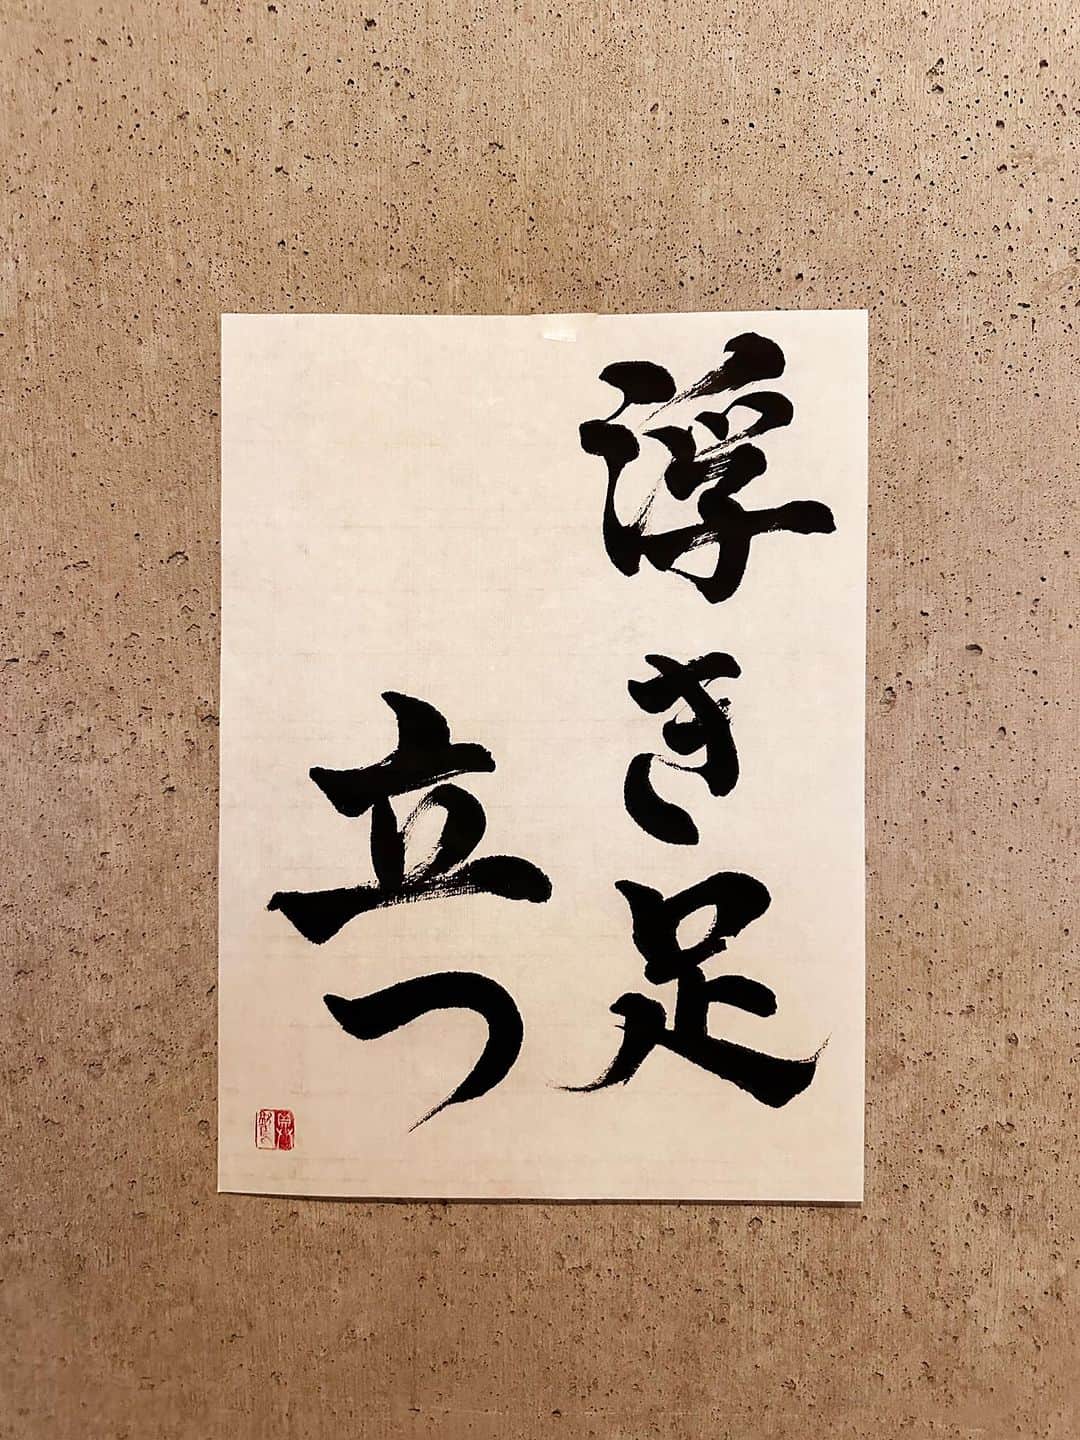 浮き足
立つ